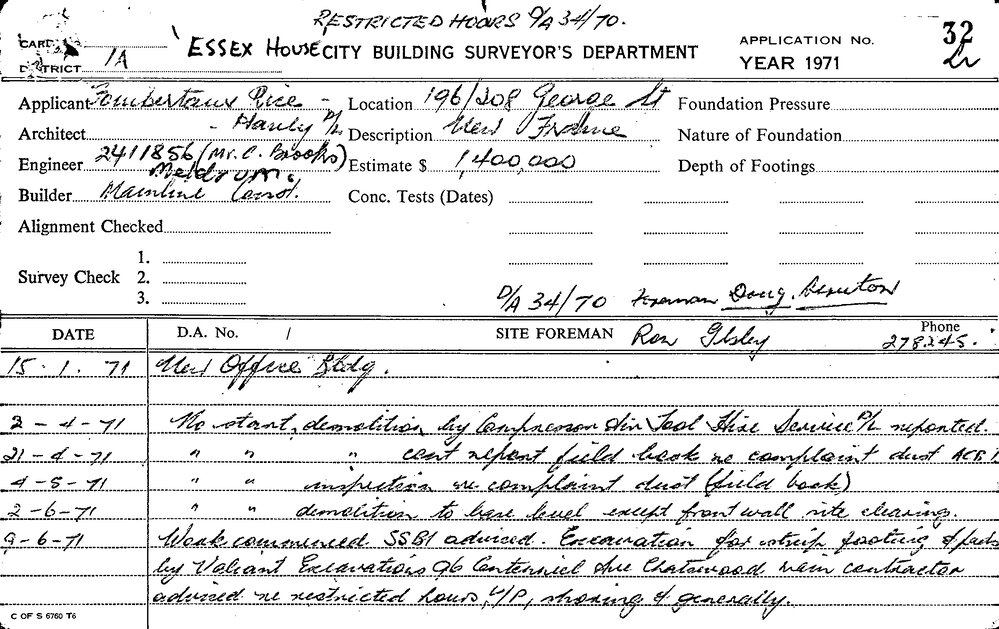 RESTRICTED HOURS D/A 34/70.
CARD
DISTRICT 1A
ESSEX HOUSE CITY BUILDING SURVEYOR'S DEPARTMENT
APPLICATION No. 32
YEAR 1971
Applicant Fombertaux Rice - Hanly P/L
Location 196/208 George St
Foundation Pressure
Architect
Description New Frame
Nature of Foundation
Engineer 2411856 (Mr. C. Brooks) Meldrum.
Estimate $ 1,400,000
Depth of Footings
Builder Mainline Const.
Conc. Tests (Dates)
Alignment Checked
Survey Check
1.
2.
3.
D/A 34/70 Foreman Doug.
DATE D.A. No. / SITE FOREMAN Ron Phone 278245.
15.1.71 New Office Bldg.
2-4-71 No start, demolition by Compressor Air Tool Hire Service P/L reported.
21-4-71 " " " cont report field book re complaint dust
4-5-71 " " inspection re complaint dust (field book)
2-6-71 " " demolition to base level except front wall site clearing.
9-6-71 Work commenced. SSB1 advised. Excavation for strip footing &
by Valiant Excavations 96 Centennial Ave Chatswood main contractor
advised re restricted hours, shoring & generally.
C OF S 6760 T6